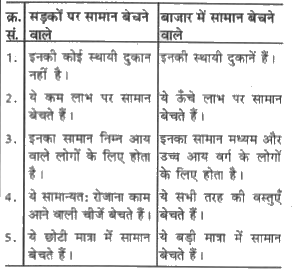 क्र. सड़कों पर सामान बेचने बाजार में सामान बेचने
सं. वाले वाले
1. इनकी कोई स्थायी दुकान इनकी स्थायी दुकानें हैं।
नहीं है।
2. ये कम लाभ पर सामान ये ऊँचे लाभ पर सामान
बेचते हैं। बेचते हैं।
3. इनका सामान निम्न आय इनका सामान मध्यम और
वाले लोगों के लिए होता उच्च आय वर्ग के लोगों
है। के लिए होता है।
4. ये सामान्यत: रोजाना काम ये सभी तरह की वस्तुएँ
आने वाली चीजें बेचते हैं। बेचते हैं।
5. ये छोटी मात्रा में सामान ये बड़ी मात्रा में सामान
बेचते हैं। बेचते हैं।